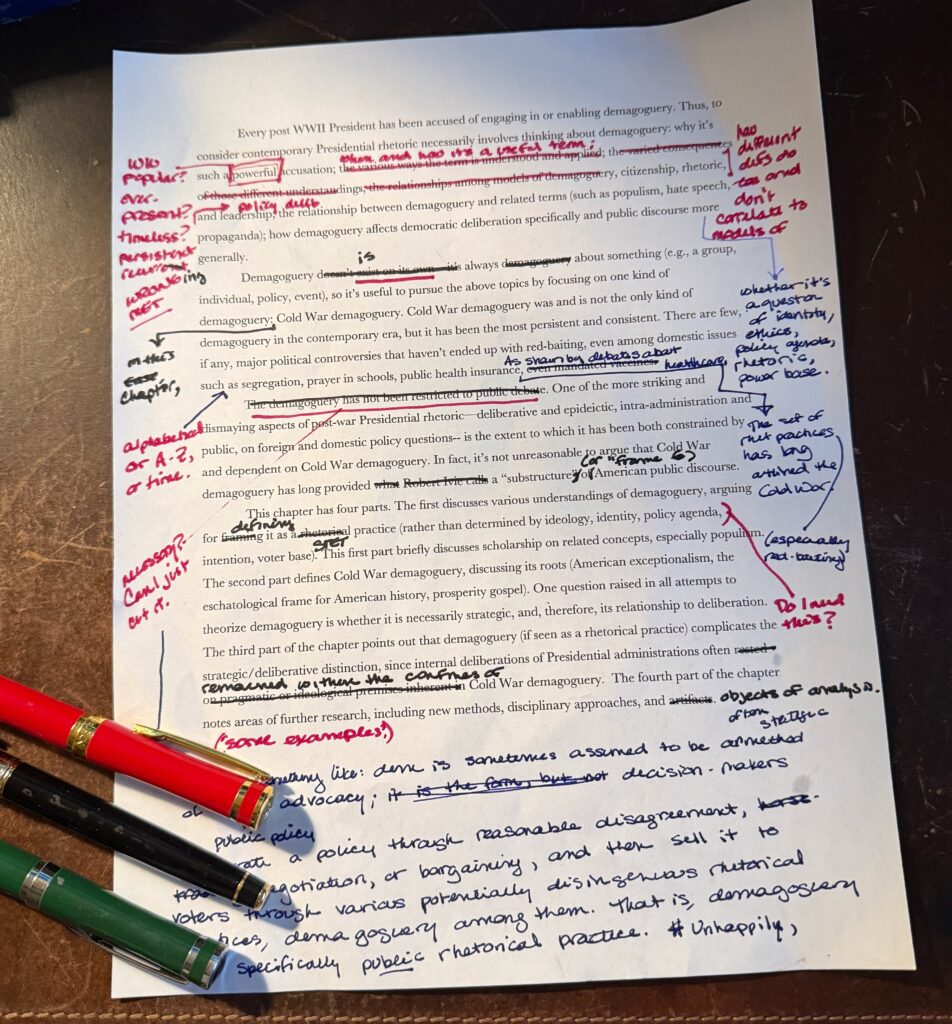 Every post WWII President has been accused of engaging in or enabling demagoguery. Thus, to
consider contemporary Presidential rhetoric necessarily involves thinking about demagoguery: why it's
when and how it's a useful term;
such a powerful accusation; the various ways the term is understood and applied; the varied consequences
of those different understandings; the relationships among models of demagoguery, citizenship, rhetoric,
policy delib
and leadership; the relationship between demagoguery and related terms (such as populism, hate speech,
propaganda); how demagoguery affects democratic deliberation specifically and public discourse more
generally.
how
different
defs do
and
don't
correlate to
models of
WC
popular?
ever-
present?
timeless?
persistent
recurrent
ing
WRONG
MET
is
Demagoguery doesn't exist on its own—it's always demagoguery about something (e.g., a group,
individual, policy, event), so it's useful to pursue the above topics by focusing on one kind of
demagoguery; Cold War demagoguery. Cold War demagoguery was and is not the only kind of
demagoguery in the contemporary era, but it has been the most persistent and consistent. There are few,
if any, major political controversies that haven't ended up with red-baiting, even among domestic issues
As shown by debates about
such as segregation, prayer in schools, public health insurance, even mandated vaccines. healthcare,
whether it's
a question
of identity,
ethics,
policy agenda,
rhetoric,
power base.
in this
chapter,
alphabetical
or A-Z,
or time.
The demagoguery has not been restricted to public debate. One of the more striking and
dismaying aspects of post-war Presidential rhetoric—deliberative and epideictic, intra-administration and
public, on foreign and domestic policy questions-- is the extent to which it has been both constrained by
and dependent on Cold War demagoguery. In fact, it's not unreasonable to argue that Cold War
(or "frame")
demagoguery has long provided what Robert Ivie calls a "substructure" of American public discourse.
The set of
rhet practices
has long
outlined the
Cold War.
(especially
red-baiting)
This chapter has four parts. The first discusses various understandings of demagoguery, arguing
defining
for framing it as a rhetorical practice (rather than determined by ideology, identity, policy agenda,
STET
intention, voter base). This first part briefly discusses scholarship on related concepts, especially populism.
The second part defines Cold War demagoguery, discussing its roots (American exceptionalism, the
eschatological frame for American history, prosperity gospel). One question raised in all attempts to
theorize demagoguery is whether it is necessarily strategic, and, therefore, its relationship to deliberation.
Do I need
this?
The third part of the chapter points out that demagoguery (if seen as a rhetorical practice) complicates the
strategic/deliberative distinction, since internal deliberations of Presidential administrations often rested
remained within the confines of
on pragmatic or ideological premises inherent in Cold War demagoguery. The fourth part of the chapter
notes areas of further research, including new methods, disciplinary approaches, and artifacts. objects of analysis.
(some examples?)
necessary?
Can I just
cut it.
often strategic
something like: dem is sometimes assumed to be a method
of advocacy; it is the form, but not decision-makers
public policy
a policy through reasonable disagreement,
negotiation, or bargaining, and then sell it to
voters through various potentially disingenuous rhetorical
demagoguery among them. That is, demagoguery
specifically public rhetorical practice. # Unhappily,